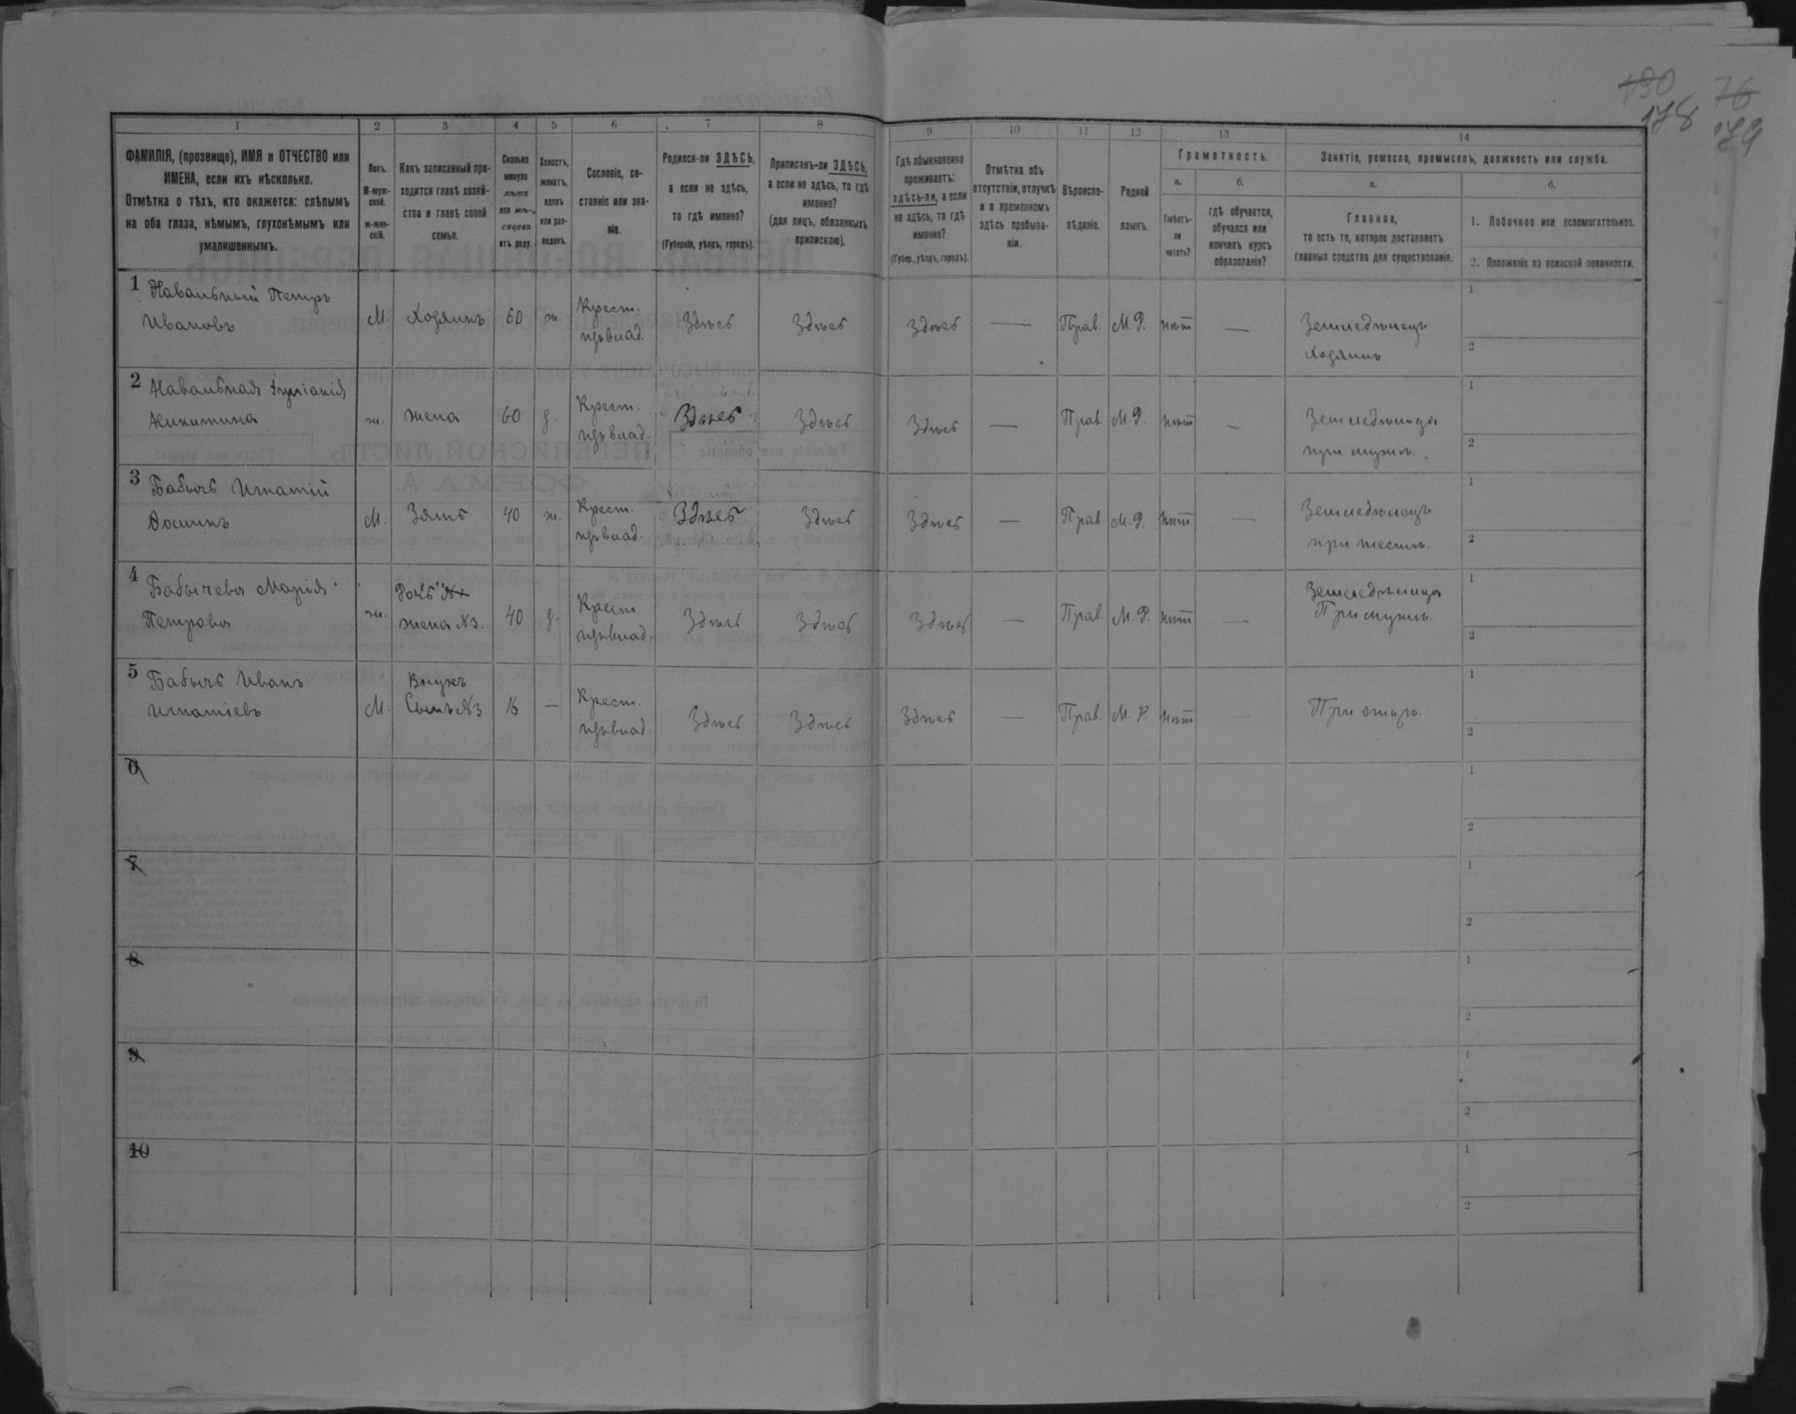 190 76
178 179
1 2 3 4 5 6 7 8 9 10 11 12 13 14
ФАМИЛІЯ, (прозвище), ИМЯ и ОТЧЕСТВО или
ИМЕНА, если ихъ нѣсколько.
Отмѣтка о тѣхъ, кто окажется: слѣпымъ
на оба глаза, нѣмымъ, глухонѣмымъ или
умалишеннымъ.
Полъ.
М-муж-
ской.
Ж-жен-
скій.
Какъ записанный при-
ходится главѣ хозяй-
ства и главѣ своей
семьи.
Сколько
минуло
лѣтъ
или мѣ-
сяцевъ
отъ роду.
Холостъ,
женатъ,
вдовъ
или раз-
веденъ.
Сословіе, со-
стояніе или зва-
ніе.
Родился-ли ЗДѢСЬ,
а если не здѣсь,
то гдѣ именно?
(Губернія, уѣздъ, городъ).
Приписанъ-ли ЗДѢСЬ,
а если не здѣсь, то гдѣ
именно?
(для лицъ, обязанныхъ
припискою).
Гдѣ обыкновенно
проживаетъ:
здѣсь-ли, а если
не здѣсь, то гдѣ
именно?
(Губер., уѣздъ, городъ).
Отмѣтка объ
отсутствіи, отлучкѣ
и о временномъ
здѣсь пребыва-
ніи.
Вѣроиспо-
вѣданіе.
Родной
языкъ.
Грамотность.
а. б.
Умѣетъ-
ли
читать?
Гдѣ обучается,
обучался или
кончилъ курсъ
образованія?
Занятіе, ремесло, промыселъ, должность или служба.
а. б.
Главное,
то есть то, которое доставляетъ
главныя средства для существованія.
1. Побочное или вспомогательное.
2. Положеніе по воинской повинности.
1 Навальный Петръ
Ивановъ
М. Хозяинъ 60 ж. Крест.
владѣ. Здѣсь Здѣсь Здѣсь — Прав. М. Р. нѣтъ — Земледѣлецъ
Хозяинъ
1
2
2 Навальная
Никитина
ж. жена 60 з. Крест.
Здѣсь Здѣсь Здѣсь — Прав. М. Р. нѣтъ — Земледѣлица
при мужѣ.
1
2
3 Бабычъ Игнатій
М. Зять 40 ж. Крест.
Здѣсь Здѣсь Здѣсь — Прав. М. Р. нѣтъ — Земледѣлецъ
при тестѣ.
1
2
4 Бабычева Марія
Петрова
ж. Дочь
жена №3. 40 з. Крест
Здѣсь Здѣсь Здѣсь — Прав. М. Р. нѣтъ — Земледѣлица
При мужѣ.
1
2
5 Бабычъ Иванъ
Игнатіевъ
М. Внукъ
Сынъ №3 16 — Крест.
Здѣсь Здѣсь Здѣсь — Прав. М. Р. нѣтъ — При отцѣ.
1
2
6
1
2
7
1
2
8
1
2
9
1
2
10
1
2